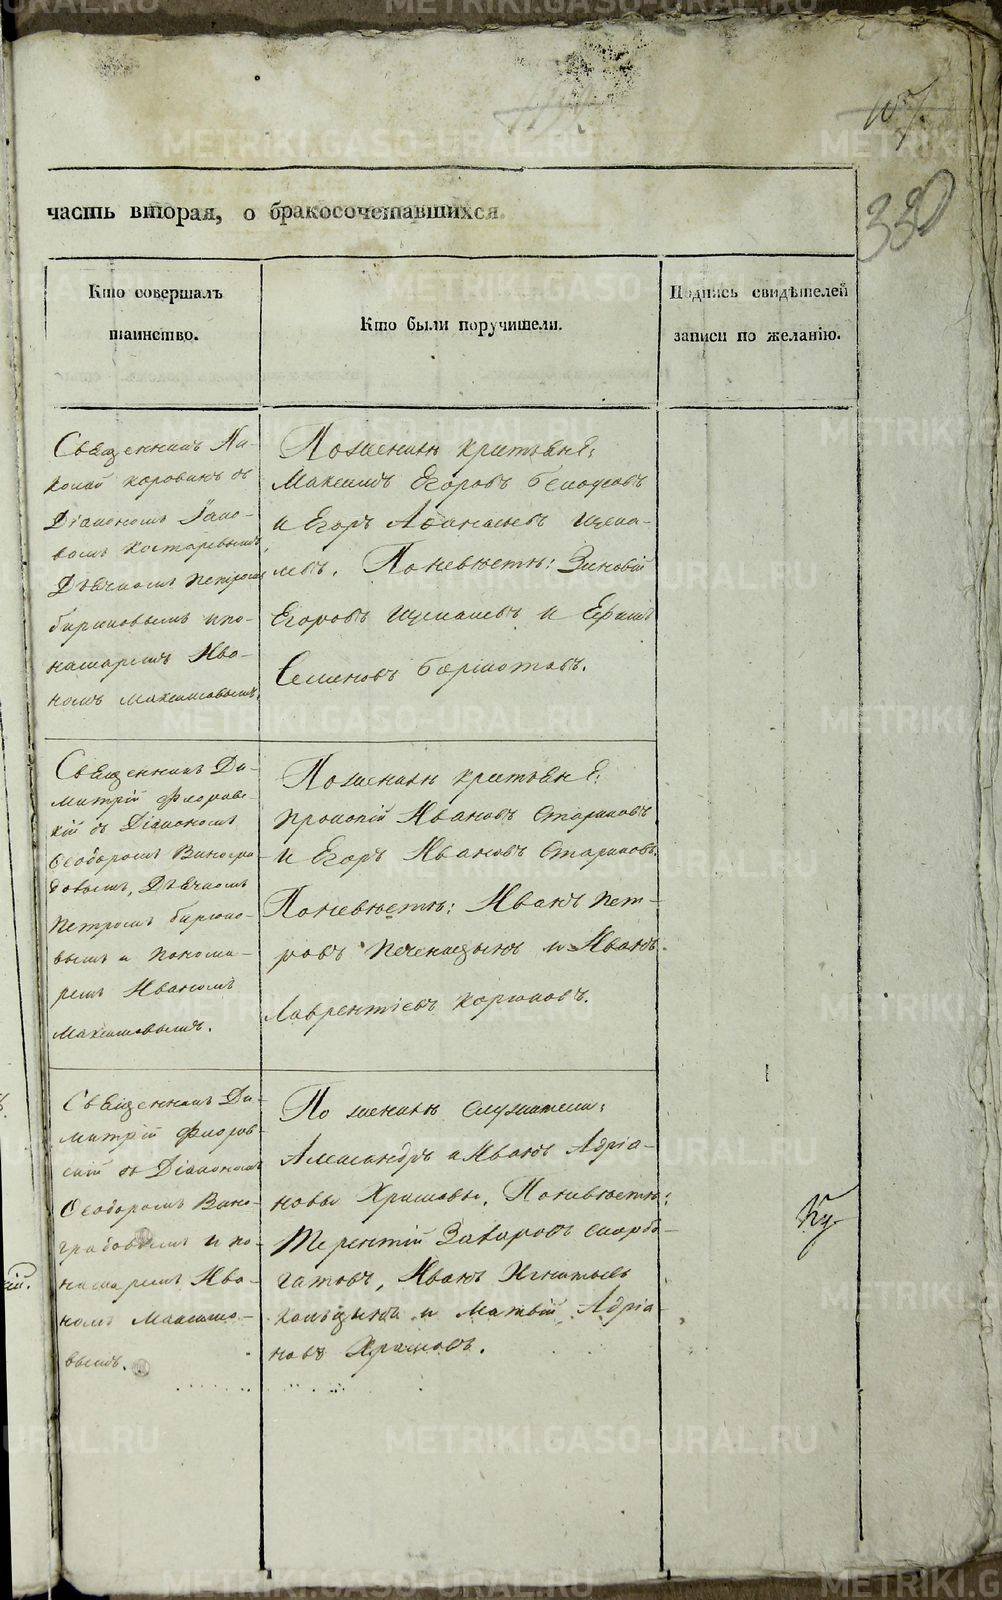 107.
330
часть вторая, о бракосочетавшихся.
Кто совершалъ
таинство.
Кто были поручители.
Подпись свидѣтелей
записи по желанію.
Священникъ Ни-
колай Коровинъ съ
Діакономъ Іако-
вомъ Костаревымъ,
Дьячкомъ Петромъ
Бирюковымъ и по-
намаремъ Ива-
номъ Максимовымъ.
По женихѣ крестьяне:
Максимъ Егоровъ Белоусовъ
и Егоръ Афанасьевъ
Поневѣстѣ: Зиновій
Егоровъ и Ефимъ
Семеновъ
Священникъ Ди-
митрій Флоровс-
кій съ Діакономъ
Ѳеодоромъ Виногра-
довымъ, Дьячкомъ
Петромъ Бирюко-
вымъ и понома-
ремъ Иваномъ
Максимовымъ.
По женихѣ крестьяне:
Прокопій Ивановъ Стариковъ
и Егоръ Ивановъ Стариковъ.
Поневѣстѣ: Иванъ Пет-
ровъ Печеницынъ и Иванъ
Лаврентіевъ Корюковъ.
Священникъ Ди-
митрій Флоров-
скій съ Діакономъ
Ѳеодоромъ Вино-
градовымъ и по-
намаремъ Ива-
номъ Максимо-
вымъ.
По женихѣ служители:
Александръ и Иванъ Адріа-
новы Храмовы. Поневѣстѣ:
Терентій Захаровъ Скоробо-
гатовъ, Иванъ Игнатьевъ
и Матвѣй Адріа-
новъ Храмовъ.
METRIKI.GASO-URAL.RU